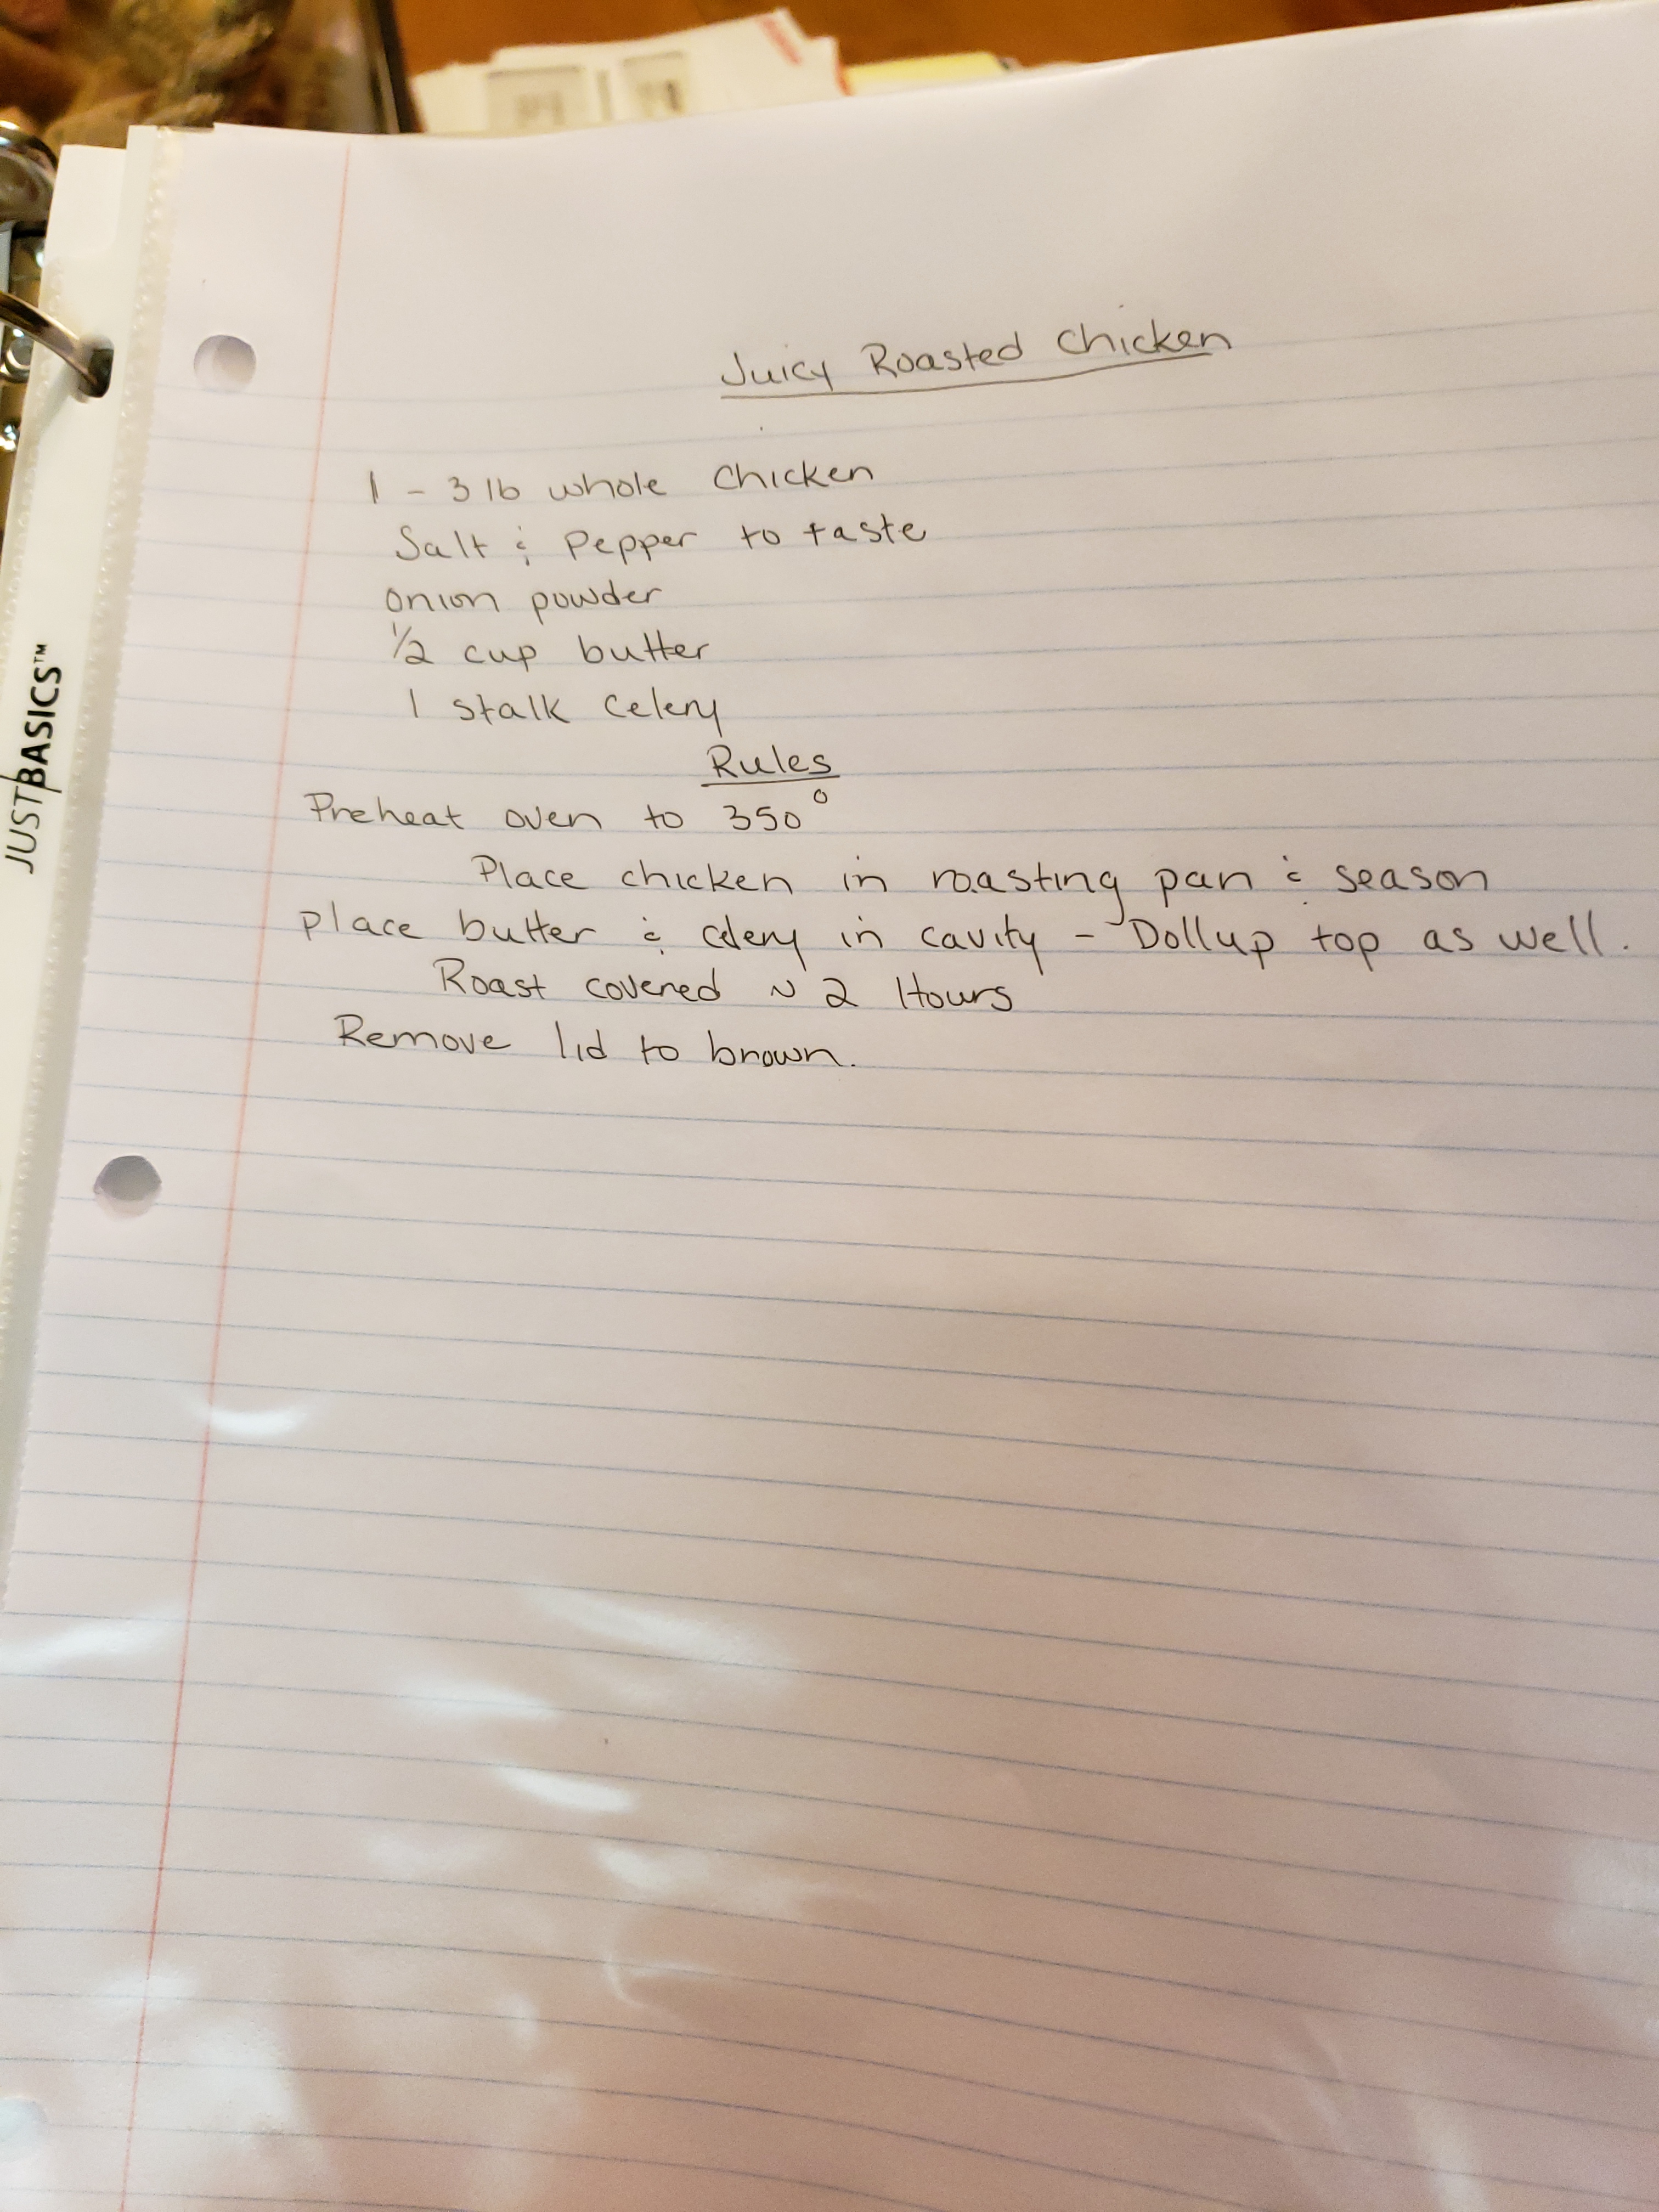 Juicy Roasted Chicken
1 - 3 lb whole Chicken
Salt & Pepper to taste
Onion powder
1/2 cup butter
1 stalk Celery
Rules
Preheat oven to 350°
Place chicken in roasting pan & season
place butter & celery in cavity - Dollup top as well.
Roast covered ~ 2 Hours
Remove lid to brown.
JUST BASICS™